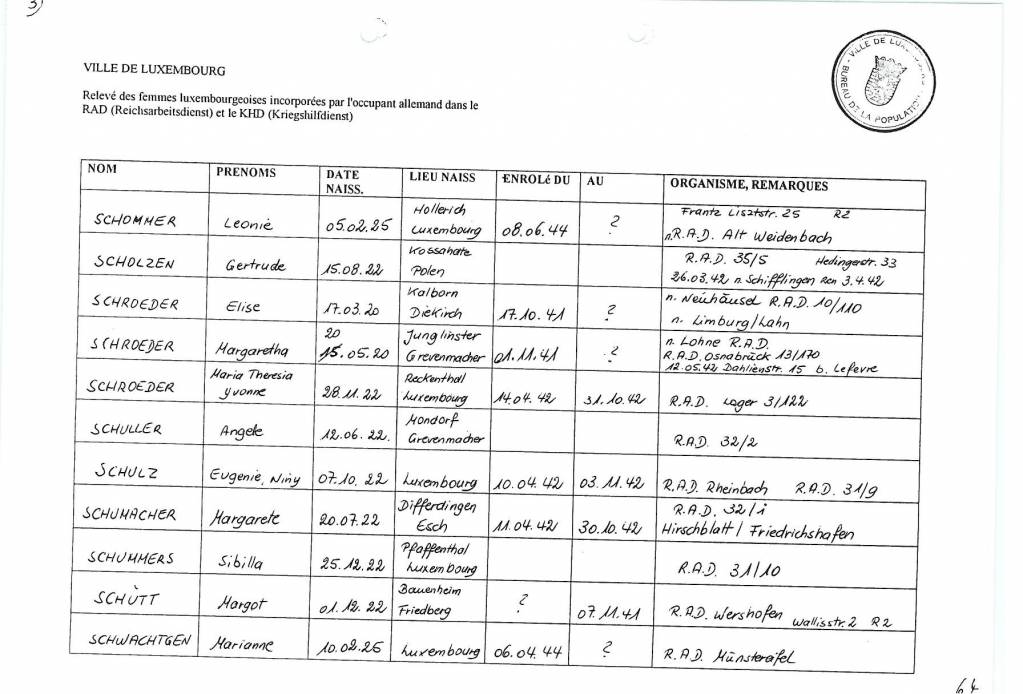 3)
VILLE DE LUXEMBOURG
VILLE DE LUXEMBOURG - BUREAU DE LA POPULATION
Relevé des femmes luxembourgeoises incorporées par l'occupant allemand dans le
RAD (Reichsarbeitsdienst) et le KHD (Kriegshilfdienst)
NOM PRENOMS DATE NAISS. LIEU NAISS ENROLé DU AU ORGANISME, REMARQUES
SCHOMMER Leonie 05.02.25 Hollerich Luxembourg 08.06.44 ? Frantz Lisztstr. 25 R2
n.R.A.D. Alt Weidenbach
SCHOLZEN Gertrude 15.08.22 Kossahate Polen R.A.D. 35/5 Hedingerstr. 33
26.03.42 n. Schifflingen 3.4.42
SCHROEDER Elise 17.03.20 Kalborn Diekirch 17.10.41 ? n. Neuhäusel R.A.D. 10/110
n. Limburg/Lahn
SCHROEDER Margaretha 20 15.05.20 Junglinster Grevenmacher 01.11.41 ? n. Lohne R.A.D.
R.A.D. Osnabrück 13/170
12.05.42 Dahlienstr. 15 b. Lefevre
SCHROEDER Maria Theresia Yvonne 28.11.22 Reckenthal Luxembourg 14.04.42 31.10.42 R.A.D. Lager 3/122
SCHULLER Angele 12.06.22. Mondorf Grevenmacher R.A.D. 32/2
SCHULZ Eugenie, Niny 07.10.22 Luxembourg 10.04.42 03.11.42 R.A.D. Rheinbach R.A.D. 31/9
SCHUMACHER Margarete 20.07.22 Differdingen Esch 11.04.42 30.10.42 R.A.D. 32/i
Hirschblatt / Friedrichshafen
SCHUMMERS Sibilla 25.12.22 Pfaffenthal Luxembourg R.A.D. 31/10
SCHÜTT Margot 01.12.22 Bauenheim Friedberg ? 07.11.41 R.A.D. Wershofen Wallisstr. 2 R2
SCHWACHTGEN Marianne 10.02.25 Luxembourg 06.04.44 ? R.A.D. Münstereifel
64